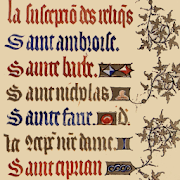 la susceptiō des reliq̄s
Saint ambroise.
Sainte barbe.
Saint nicholas
Sainte fare. d.
le ꝯcept' nr̄e dame
Saint ciprian